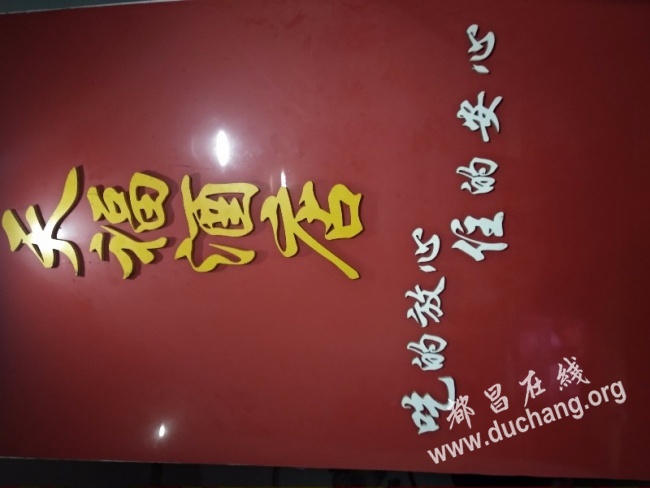 天福酒店
吃的放心
住的安心
都昌在线
www.duchang.org